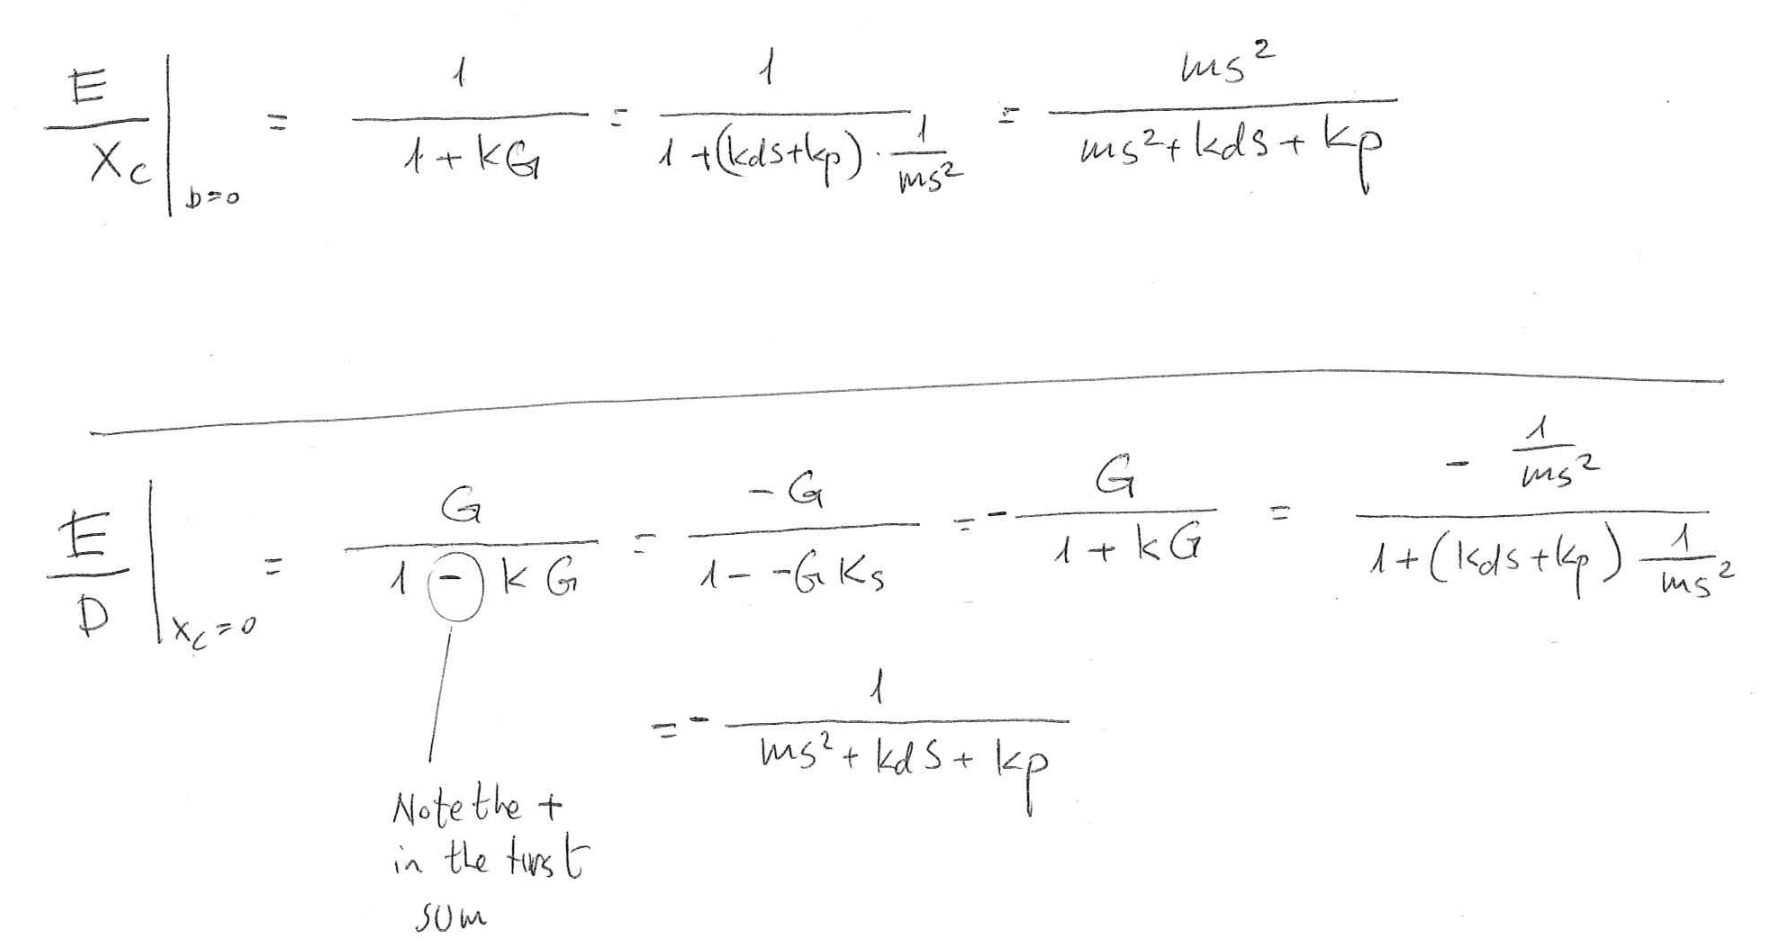 E/Xc |D=0 = 1/(1 + kG) = 1/(1 + (kds+kp) · 1/ms²) = ms²/(ms² + kds + kp)
E/D |Xc=0 = G/(1 - kG) = -G/(1 - -G Ks) = - G/(1 + kG) = - 1/ms² / (1 + (kds + kp) 1/ms²)
= - 1/(ms² + kds + kp)
Note the +
in the first
sum